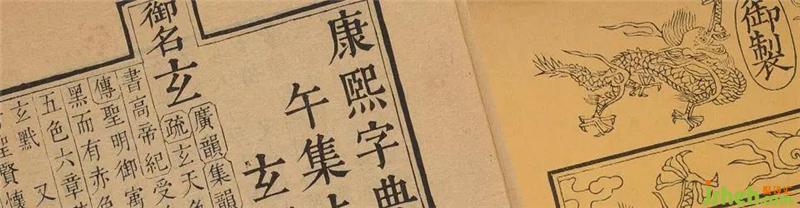 御製
康熙字典
午集上
玄
御名玄
廣韻集韻
疏玄天色
書高帝紀受
傳聖明御寓
黑而有赤色
五色六章
玄默 又
聖賢